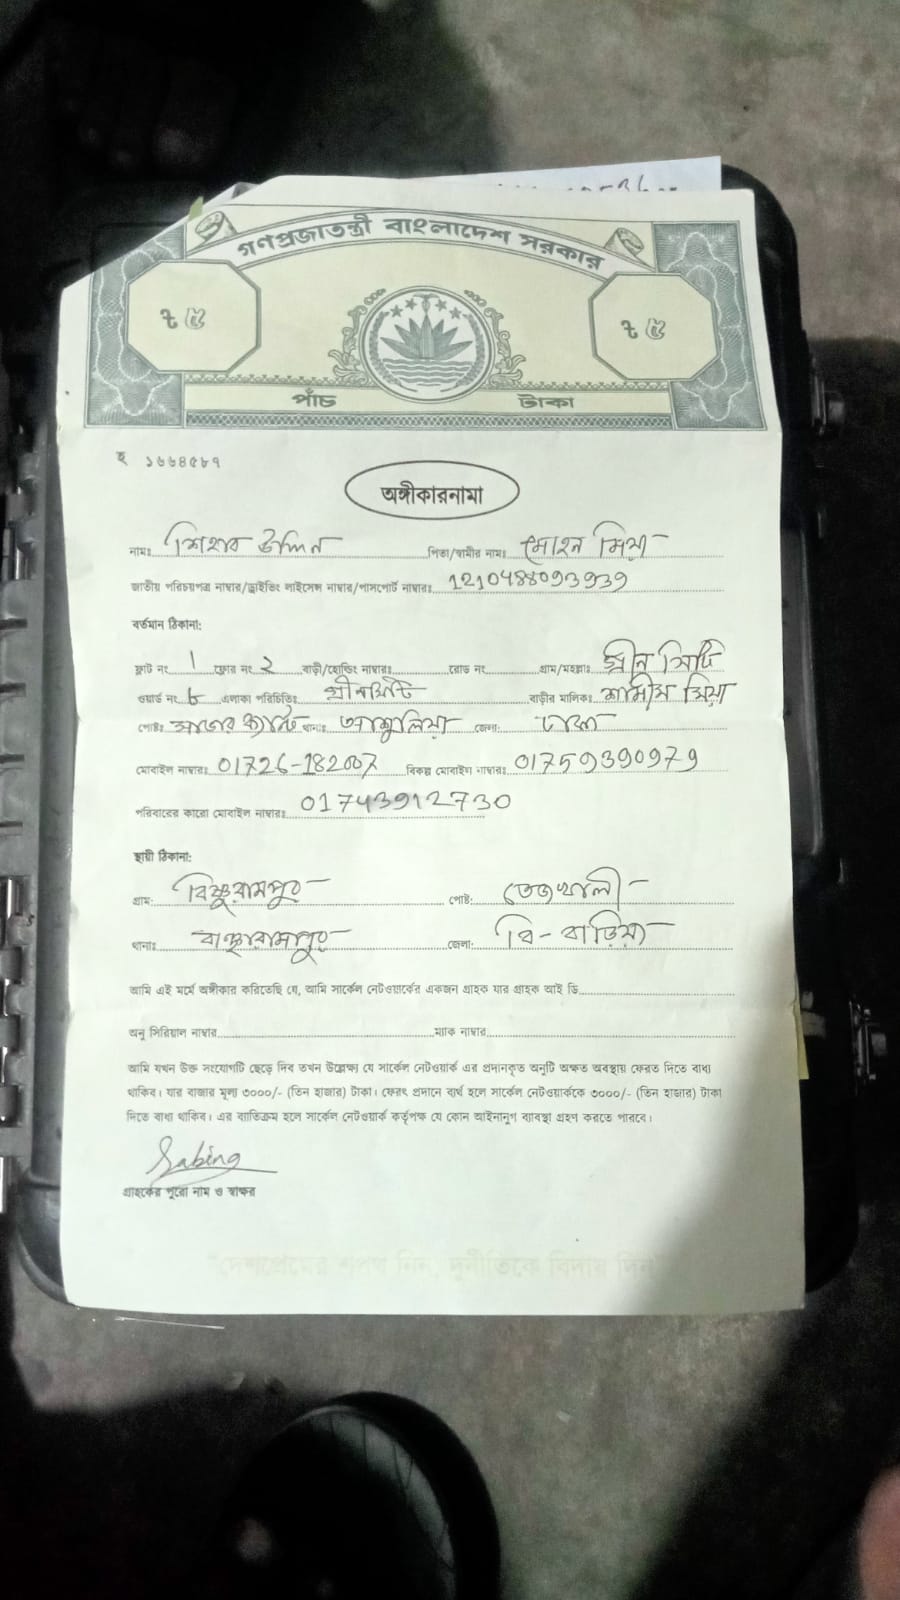 গণপ্রজাতন্ত্রী বাংলাদেশ সরকার
ট ৫ ট ৫
পাঁচ টাকা
হ ১৬৬৪৫৮৭
অঙ্গীকারনামা
নামঃ শিহাব উদ্দিন পিতা/স্বামীর নামঃ মোহন মিয়া
জাতীয় পরিচয়পত্র নাম্বার/ড্রাইভিং লাইসেন্স নাম্বার/পাসপোর্ট নাম্বারঃ
বর্তমান ঠিকানা:
ফ্লাট নং 1 ফ্লোর নং ২ বাড়ী/হোল্ডিং নাম্বারঃ রোড নং গ্রাম/মহল্লাঃ গ্রীন সিটি
ওয়ার্ড নং ৮ এলাকা পরিচিতিঃ গ্রীনসিটি বাড়ীর মালিকঃ শামীম মিয়া
পোষ্টঃ সাভার ক্যান্ট থানাঃ আশুলিয়া জেলা: ঢাকা
মোবাইল নাম্বারঃ 01726-182007 বিকল্প মোবাইল নাম্বারঃ 01759390979
পরিবারের কারো মোবাইল নাম্বারঃ 01743912730
স্থায়ী ঠিকানা:
গ্রাম: বিষ্ণুরামপুর পোষ্ট: তেজখালী
থানাঃ বাঞ্ছারামপুর জেলা: বি-বাড়িয়া
আমি এই মর্মে অঙ্গীকার করিতেছি যে, আমি সার্কেল নেটওয়ার্কের একজন গ্রাহক যার গ্রাহক আই ডি
অনু সিরিয়াল নাম্বার ম্যাক নাম্বার
আমি যখন উক্ত সংযোগটি ছেড়ে দিব তখন উল্লেক্ষ্য যে সার্কেল নেটওয়ার্ক এর প্রদানকৃত অনুটি অক্ষত অবস্থায় ফেরত দিতে বাধ্য
থাকিব। যার বাজার মূল্য ৩০০০/- (তিন হাজার) টাকা। ফেরৎ প্রদানে ব্যর্থ হলে সার্কেল নেটওয়ার্ককে ৩০০০/- (তিন হাজার) টাকা
দিতে বাধ্য থাকিব। এর ব্যতিক্রম হলে সার্কেল নেটওয়ার্ক কর্তৃপক্ষ যে কোন আইনানুগ ব্যবস্থা গ্রহণ করতে পারবে।
Sabina
গ্রাহকের পুরো নাম ও স্বাক্ষর
"দেশপ্রেমের শপথ নিন, দুর্নীতিকে বিদায় দিন"